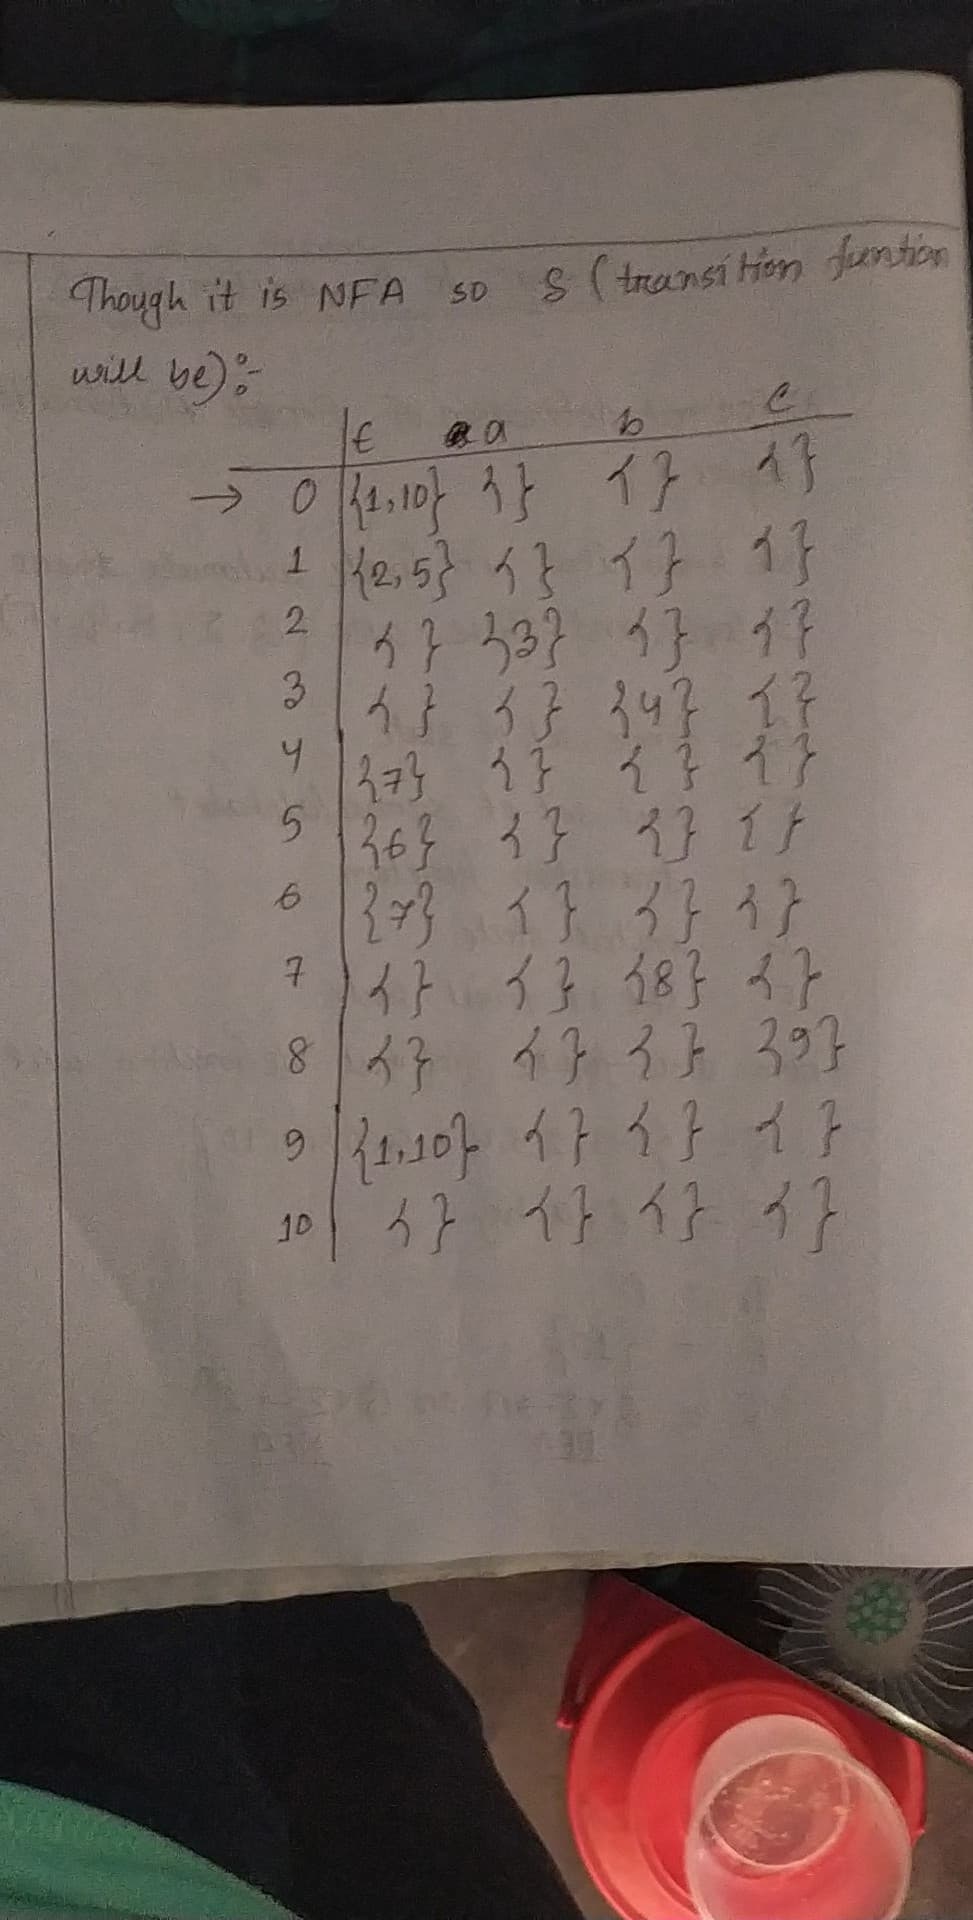 Though it is NFA so δ ( transition funtion
will be):-
ϵ a b c
→ 0 {1,10} {} {} {}
1 {2,5} {} {} {}
2 {} {3} {} {}
3 {} {} {4} {}
4 {7} {} {} {}
5 {6} {} {} {}
6 {7} {} {} {}
7 {} {} {8} {}
8 {} {} {} {9}
9 {1,10} {} {} {}
10 {} {} {} {}